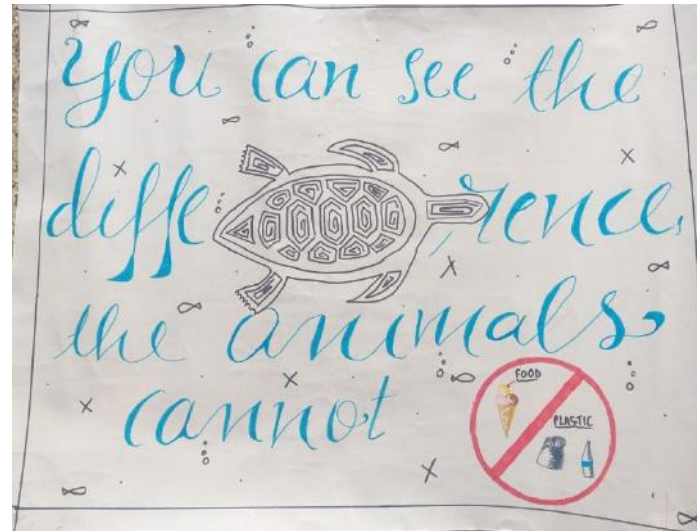 You can see the
difference,
the animals
cannot
FOOD
PLASTIC